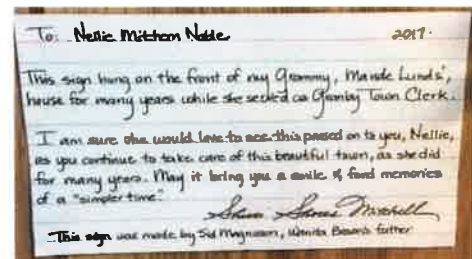 To: Nellie Mitchem Noble 2017.
This sign hung on the front of my Grammy, Maude Lunds',
house for many years while she served as Granby Town Clerk.
I am sure she would love to see this passed on to you, Nellie,
as you continue to take care of this beautiful town, as she did
for many years. May it bring you a smile & fond memories
of a "simpler time".
Mitchell
This sign was made by Sid Magnuson, father